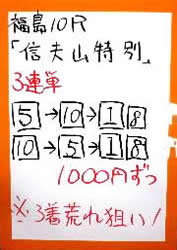 福島10R
「信夫山特別」
3連単
5→10→1 8
10→5→1 8
1000円ずつ
※3着荒れ狙い!